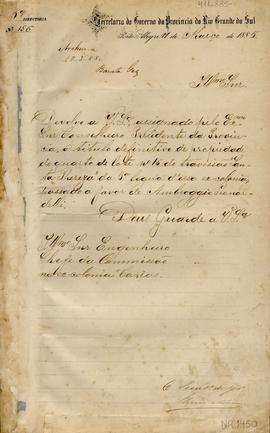 411.385-
2ª DIRECTORIA
Nº 156
Secretaria do Governo da Provincia do Rio Grande do Sul
Porto Alegre 11 de Março de 1885
Archive
Illmo Snr.
Devolvo a V.Sª, assignado pelo Exmo
Snr. Conselheiro Presidente da Provin-
cia, o titulo definitivo de propriedade
do quarto de lote nº 14 do travessão San-
ta Thereza da 5ª legua d'essa ex-colonia,
passado a favor de Ambroggio
Deus Guarde a V.Sª
Illmo Snr. Engenheiro
Chefe da Commissão
na ex-colonia Caxias.
NR.1450